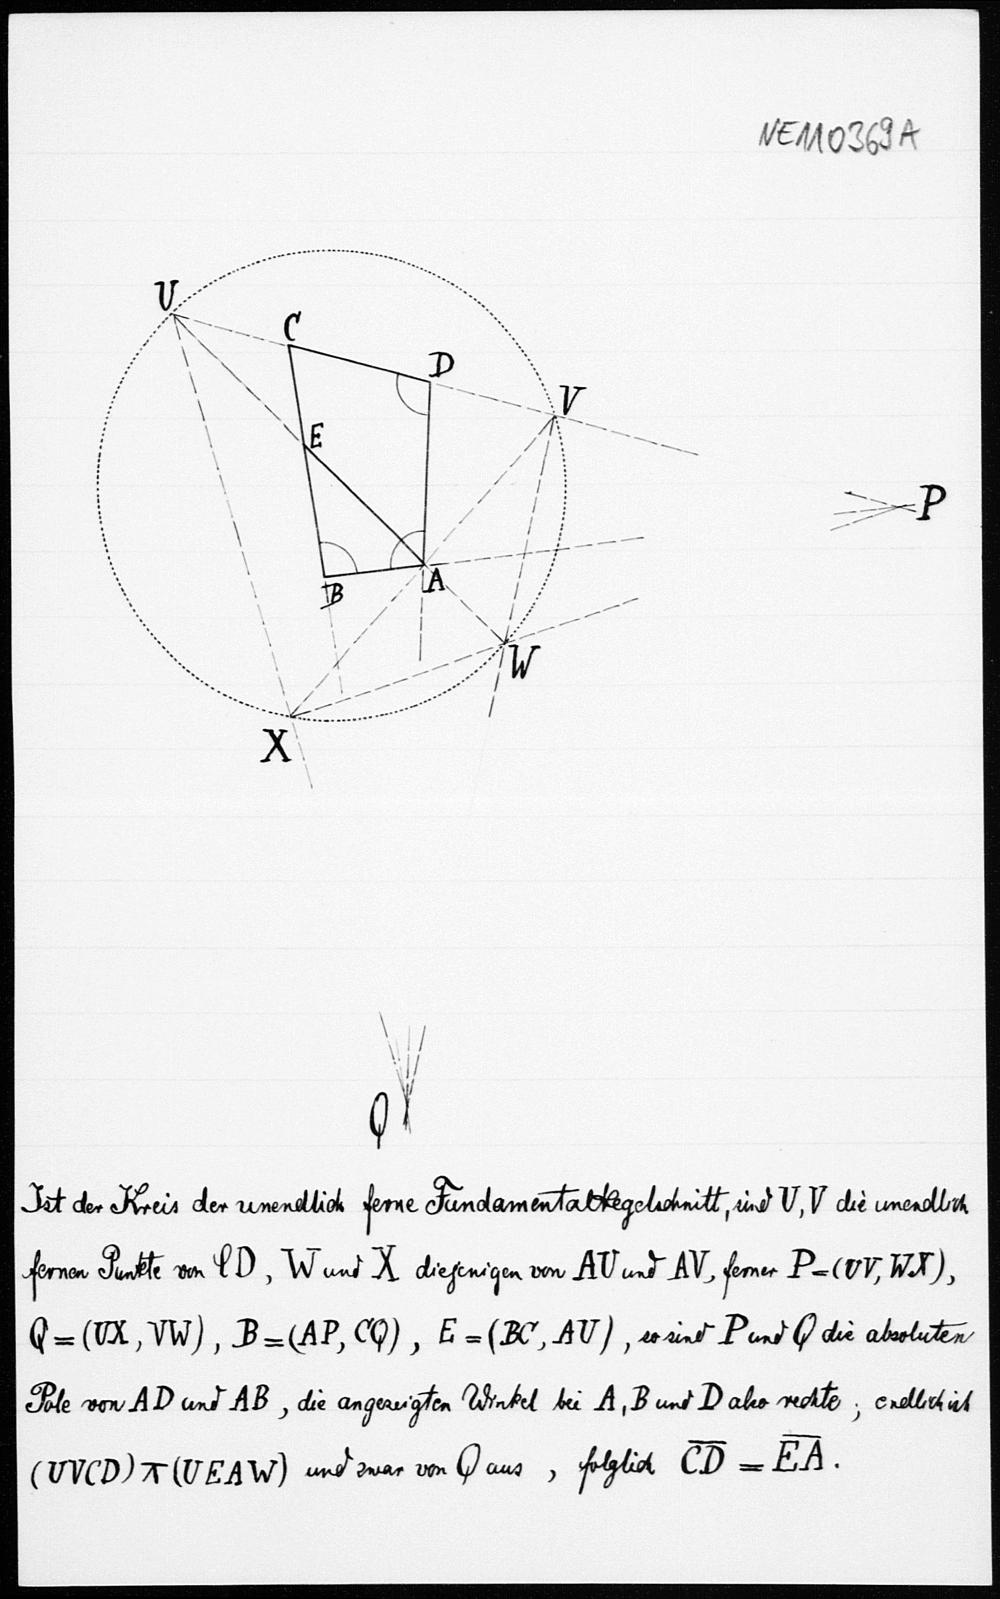 NE110369A
U
C
D
V
E
P
B
A
W
X
Q
Ist der Kreis der unendlich ferne Fundamentalkegelschnitt, sind U, V die unendlich
fernen Punkte von CD, W und X diejenigen von AU und AV, ferner P=(UV, WX),
Q=(UX, VW), B=(AP, CQ), E=(BC, AU), so sind P und Q die absoluten
Pole von AD und AB, die angezeigten Winkel bei A, B und D also rechte; endlich ist
(UVCD) ⊼ (UEAW) und zwar von Q aus, folglich C̅D̅ = E̅A̅.